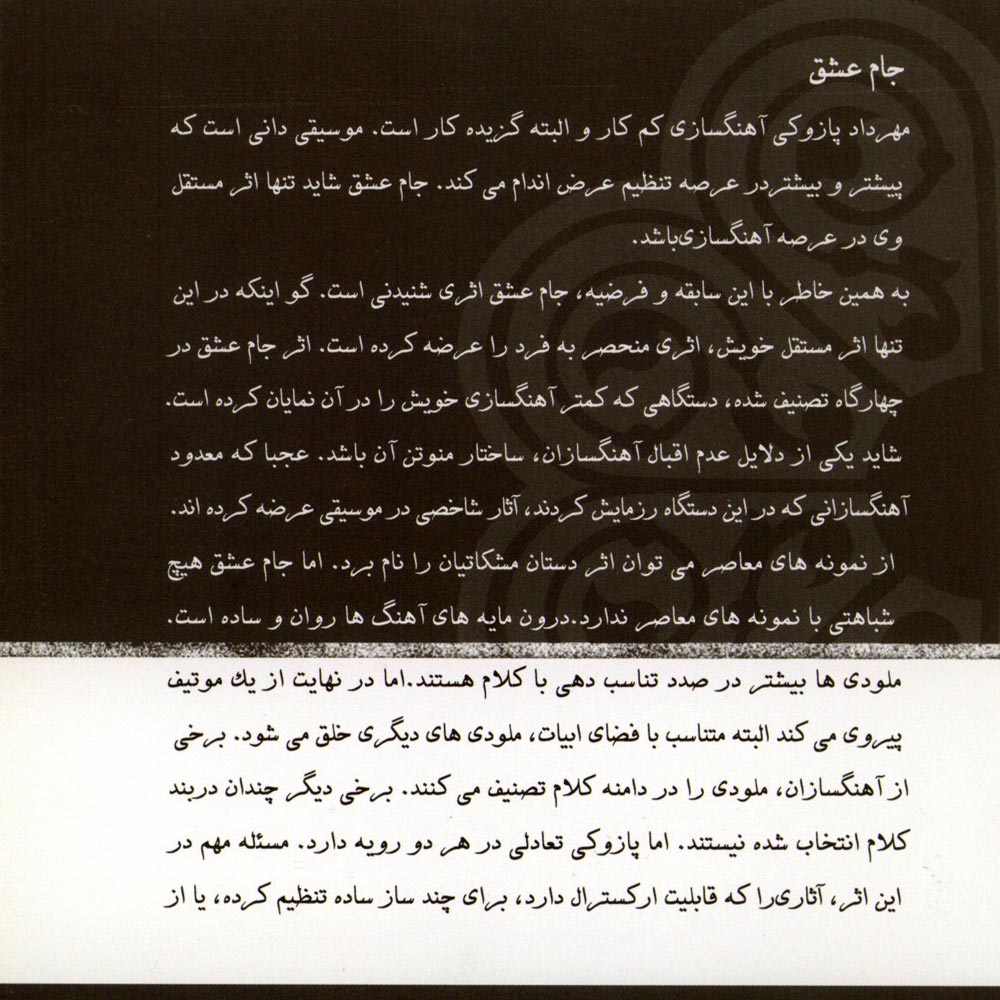 جام عشق
مهرداد پازوکی آهنگسازی کم کار و البته گزیده کار است. موسیقی دانی است که
پیشتر و بیشتردر عرصه تنظیم عرض اندام می کند. جام عشق شاید تنها اثر مستقل
وی در عرصه آهنگسازی‌باشد.
به همین خاطر با این سابقه و فرضیه، جام عشق اثری شنیدنی است. گو اینکه در این
تنها اثر مستقل خویش، اثری منحصر به فرد را عرضه کرده است. اثر جام عشق در
چهارگاه تصنیف شده، دستگاهی که کمتر آهنگسازی خویش را در آن نمایان کرده است.
شاید یکی از دلایل عدم اقبال آهنگسازان، ساختار منوتن آن باشد. عجبا که معدود
آهنگسازانی که در این دستگاه رزمایش کردند، آثار شاخصی در موسیقی عرضه کرده اند.
از نمونه های معاصر می توان اثر دستان مشکاتیان را نام برد. اما جام عشق هیچ
شباهتی با نمونه های معاصر ندارد.درون مایه های آهنگ ها روان و ساده است.
ملودی ها بیشتر در صدد تناسب دهی با کلام هستند.اما در نهایت از یك موتیف
پیروی می کند البته متناسب با فضای ابیات، ملودی های دیگری خلق می شود. برخی
از آهنگسازان، ملودی را در دامنه کلام تصنیف می کنند. برخی دیگر چندان دربند
کلام انتخاب شده نیستند. اما پازوکی تعادلی در هر دو رویه دارد. مسئله مهم در
این اثر، آثاری‌را که قابلیت ارکسترال دارد، برای چند ساز ساده تنظیم کرده، یا از